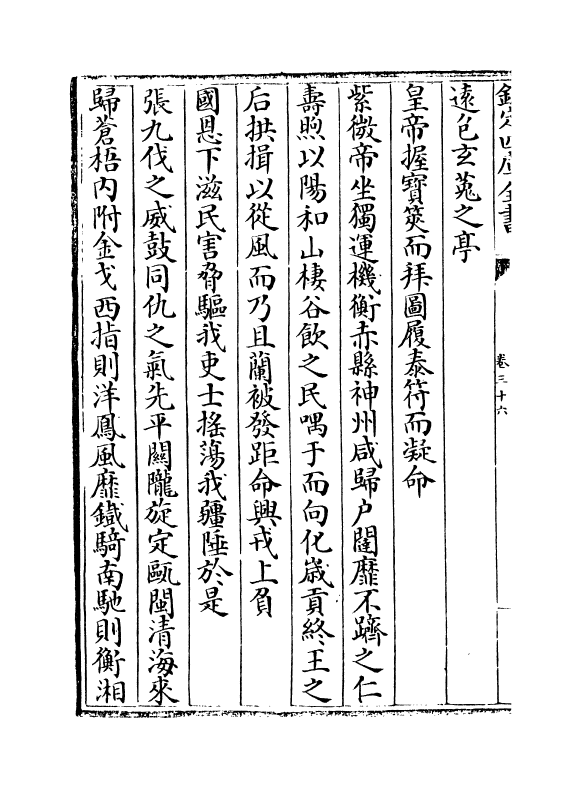 欽定四庫全書
卷三十六
遠包玄菟之亭
皇帝握寳筴而拜圖履泰符而凝命
紫微帝坐獨運機衡赤縣神州咸歸户闥靡不躋之仁
壽煦以陽和山棲谷飲之民喁于而向化嵗貢終王之
后拱揖以從風而乃且蘭被發距命興戎上負
國恩下滋民害脅驅我吏士搖蕩我疆陲於是
張九伐之威鼓同仇之氣先平闗隴旋定甌閩清海來
歸蒼梧内附金戈西指則洋鳳風靡鐡騎南馳則衡湘